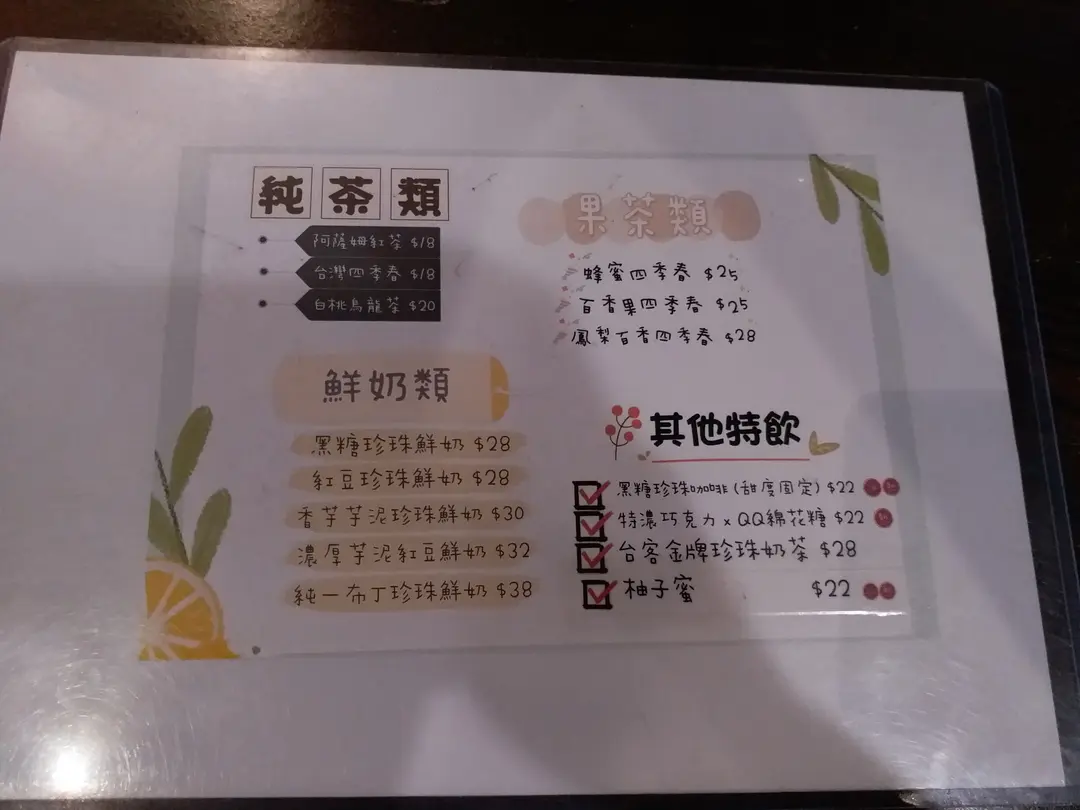 純茶類
阿薩姆紅茶 $18
台灣四季春 $18
白桃烏龍茶 $20
鮮奶類
黑糖珍珠鮮奶 $28
紅豆珍珠鮮奶 $28
香芋芋泥珍珠鮮奶 $30
濃厚芋泥紅豆鮮奶 $32
純一布丁珍珠鮮奶 $38
果茶類
蜂蜜四季春 $25
百香果四季春 $25
鳳梨百香四季春 $28
其他特飲
黑糖珍珠咖啡(甜度固定) $22
特濃巧克力x QQ綿花糖 $22
台客金牌珍珠奶茶 $28
柚子蜜 $22